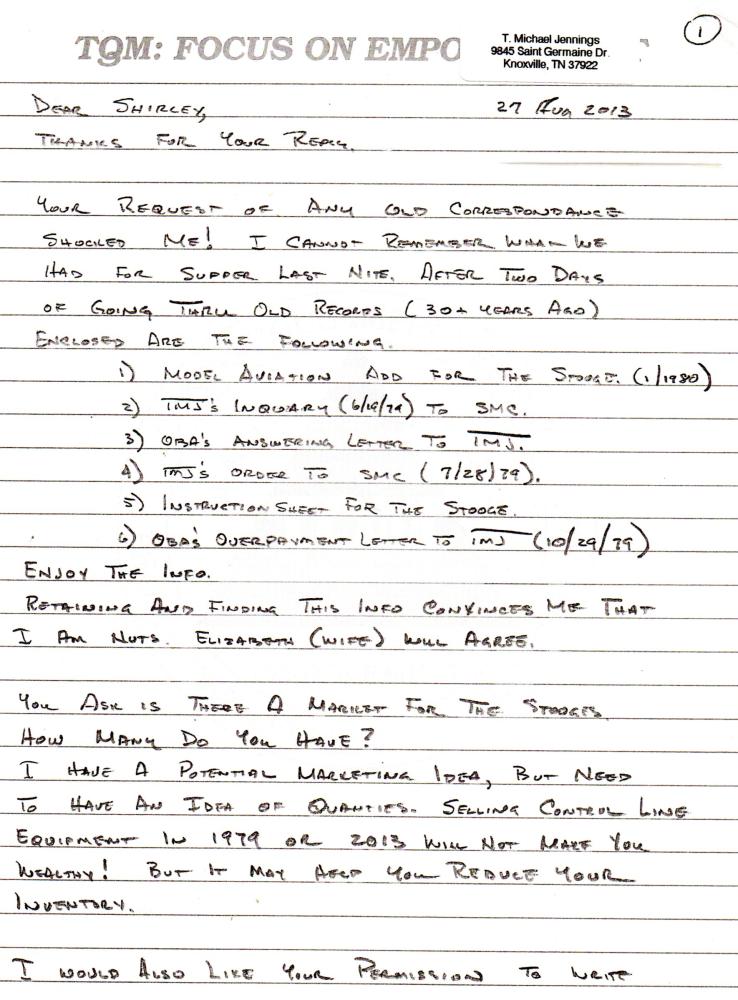 1
TQM: FOCUS ON EMPO
T. Michael Jennings
9845 Saint Germaine Dr.
Knoxville, TN 37922
DEAR SHIRLEY, 27 Aug 2013
THANKS FOR YOUR REPLY.
YOUR REQUEST OF ANY OLD CORRESPONDANCE
SHOCKED ME! I CANNOT REMEMBER WHAT WE
HAD FOR SUPPER LAST NITE. AFTER TWO DAYS
OF GOING THRU OLD RECORDS (30+ YEARS AGO)
ENCLOSED ARE THE FOLLOWING.
1) MODEL AVIATION ADD FOR THE STOOGE. (1/1980)
2) TMJ'S INQUARY (6/19/79) TO SMC.
3) OBA'S ANSWERING LETTER TO TMJ.
4) TMJ'S ORDER TO SMC (7/28/79).
5) INSTRUCTION SHEET FOR THE STOOGE.
6) OBA'S OVERPAYMENT LETTER TO TMJ (10/29/79)
ENJOY THE INFO.
RETAINING AND FINDING THIS INFO CONVINCES ME THAT
I AM NUTS. ELIZABETH (WIFE) WILL AGREE.
YOU ASK IS THERE A MARKET FOR THE STOOGES.
HOW MANY DO YOU HAVE?
I HAVE A POTENTIAL MARKETING IDEA, BUT NEED
TO HAVE AN IDEA OF QUANTIES. SELLING CONTROL LINE
EQUIPMENT IN 1979 OR 2013 WILL NOT MAKE YOU
WEALTHY! BUT IT MAY HELP YOU REDUCE YOUR
INVENTORY.
I WOULD ALSO LIKE YOUR PERMISSION TO WRITE